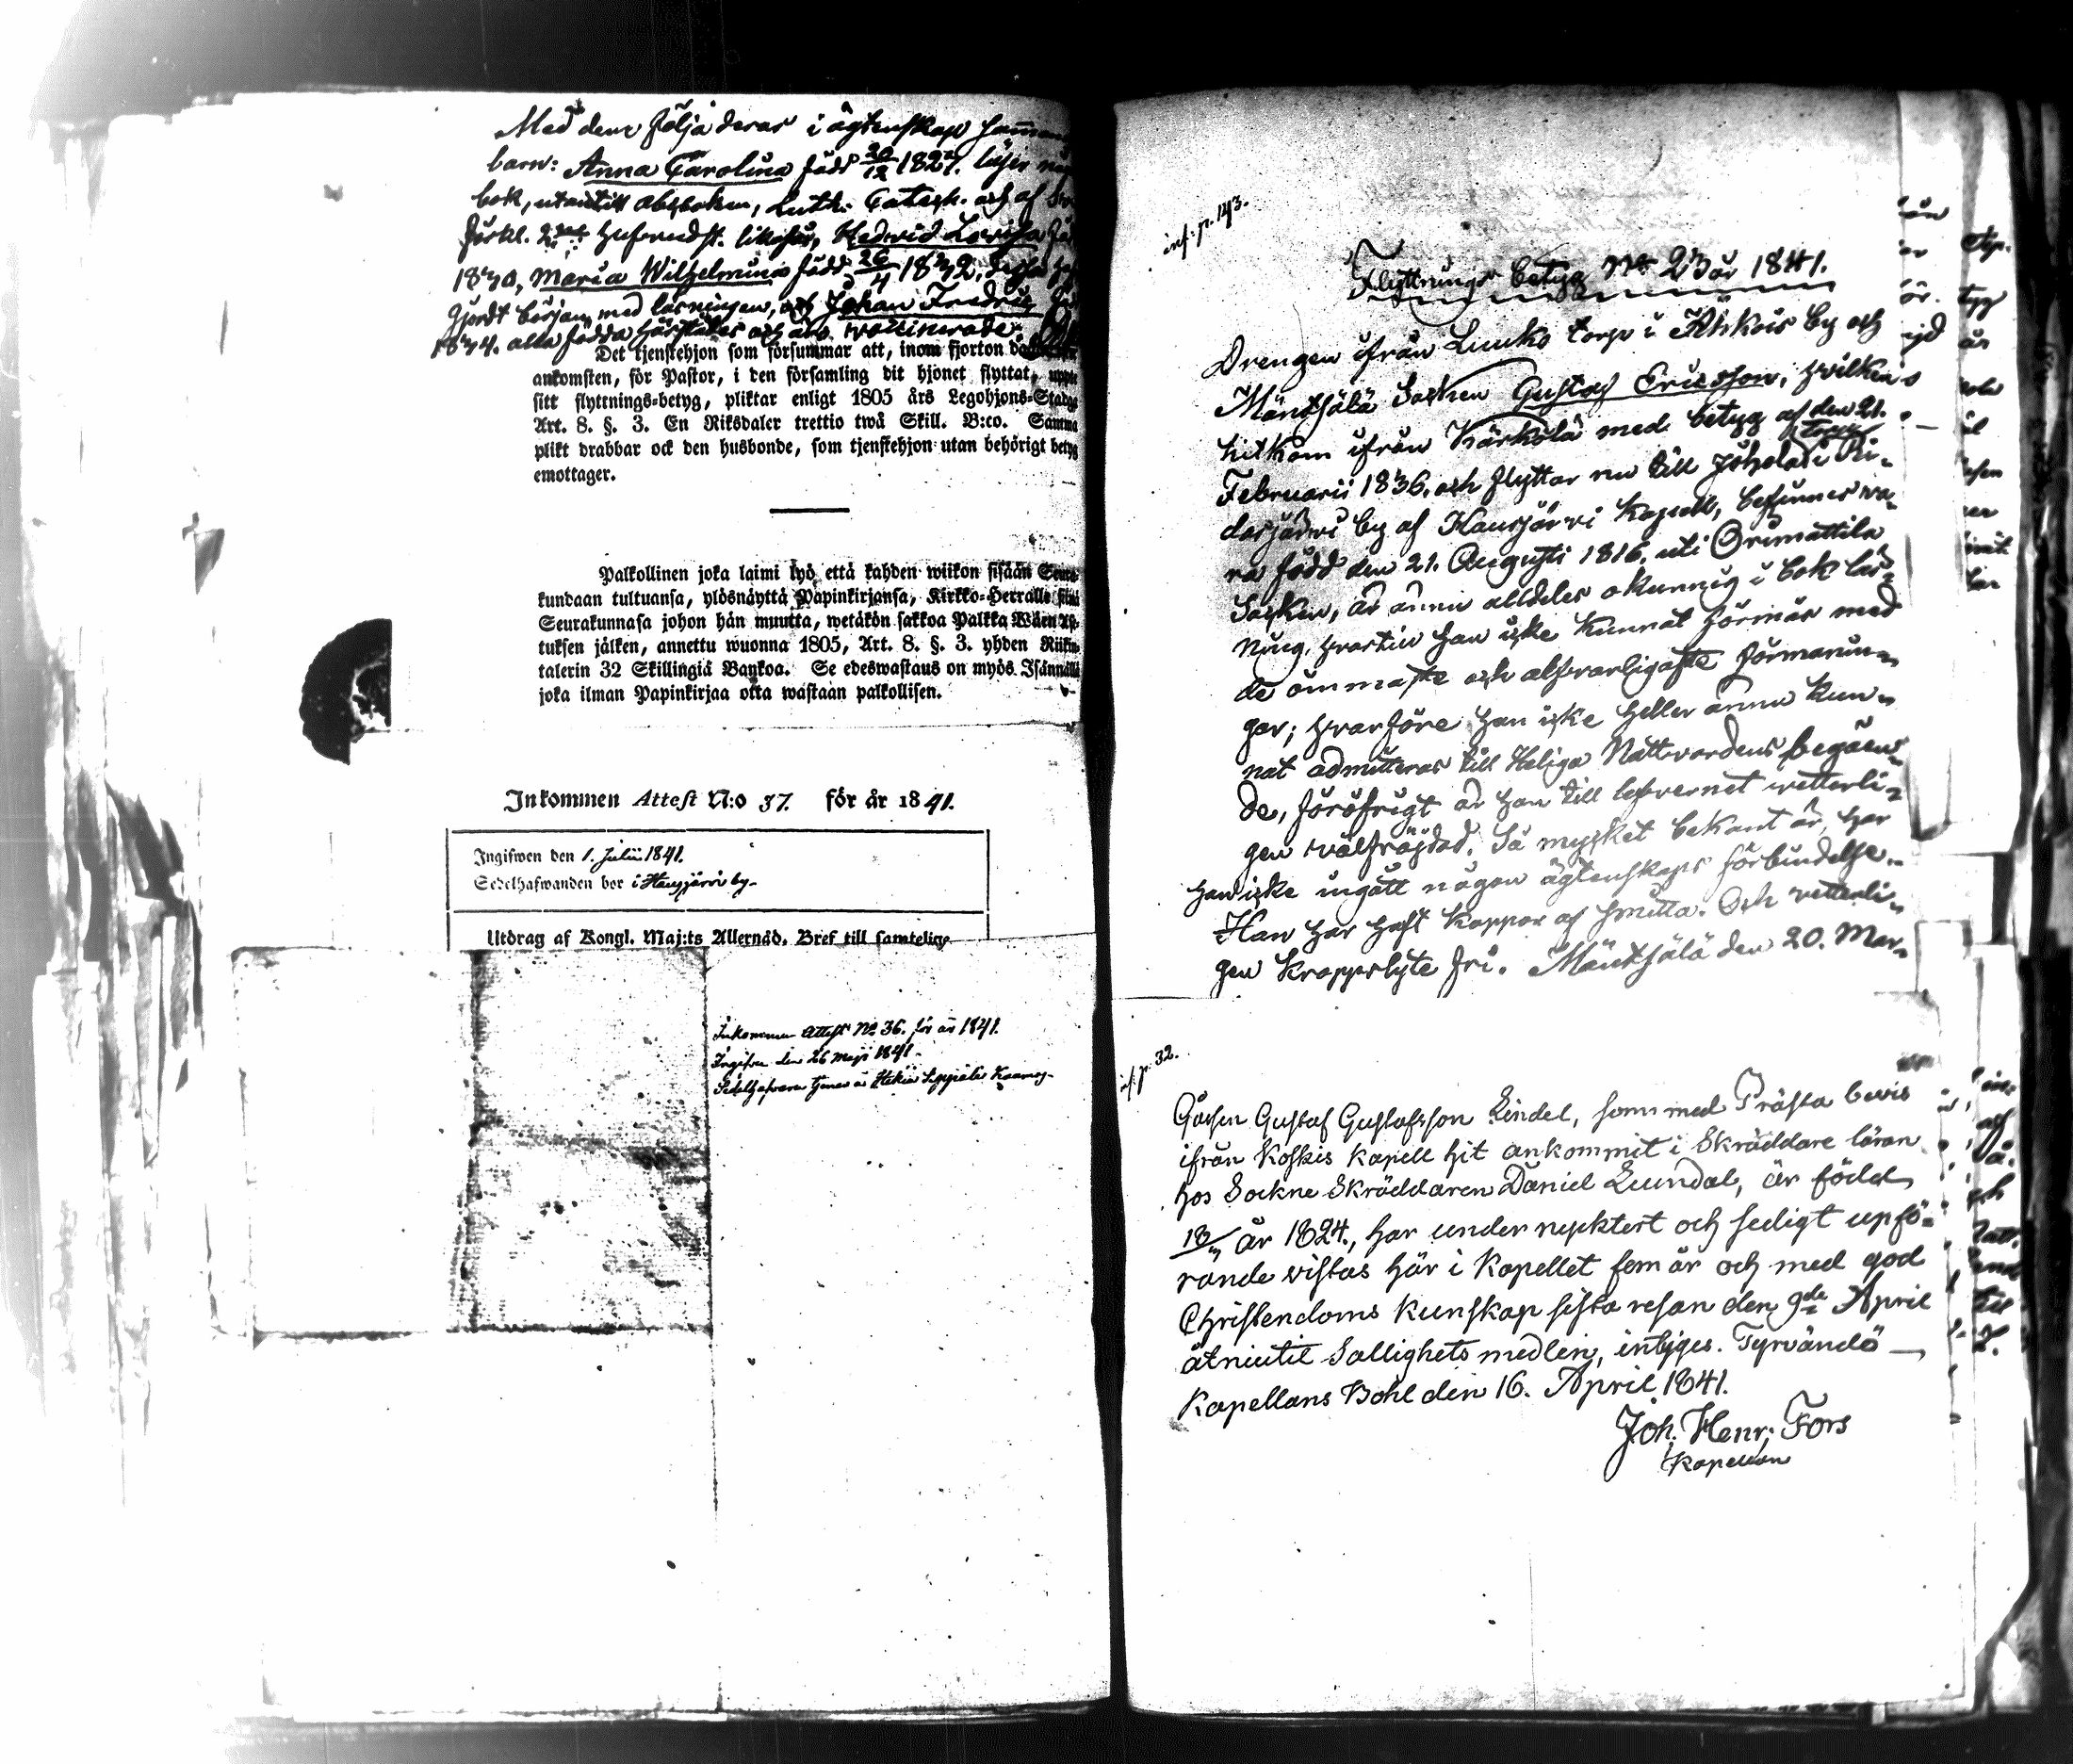 Med dem följa deras i ägtenskap
barn: Anna Carolina född 20/12 1827. läser
bok, utantill abcboken, Luth. Catech. och af
förkl. Hedvid Lovisa
1830, Maria Wilhelmina född 26/4 1832,
gjordt början med läsningen, och Johan Fredric
1834. alla födda härstädes och äro vaccinerade.
Det tjenstehjon som försummar att, inom fjorton
ankomsten, för Pastor, i den församling dit hjonet flyttat,
sitt flyttnings-betyg, pliktar enligt 1805 års Legohjons-Stadga
Art. 8. §. 3. En Riksdaler trettio twå Skill. B:co. Samma
plikt drabbar ock den husbonde, som tjenstehjon utan behörigt betyg
emottager.
Palkollinen joka laimi lyö että kahden wiikon sisään Seura-
kundaan tultuansa, ylösnäyttä Papinkirjansa, Kirkko-Herralle siinä
Seurakunnasa johon hän muutta, wetäkön sakkoa Palkka Wäen As-
tuksen jälken, annettu wuonna 1805, Art. 8. §. 3. yhden Riikin-
talerin 32 Skillingiä Bankoa. Se edeswastaus on myös Isännällä
joka ilman Papinkirjaa otta wastaan palkollisen.
Inkommen Attest N:o 37. för år 1841.
Ingifwen den 1. Julii 1841.
Sedelhafwanden bor i Hausjärvi by.
Utdrag af Kongl. Maj:ts Allernåd. Bref till samtelige
Inkommen Attest No 36. för år 1841.
Ingifven den 26 Maji 1841.
Sedelhafvaren tjenar å
inf. p. 143.
Flyttnings betyg No 23 år 1841.
Drengen ifrån Luuks torp i Kähkois by och
Mäntsälä Socken Gustaf Ericsson, hvilken
hitkom ifrån Kärkölä med betyg af den 21.
Februarii 1836, och flyttar nu till Johola torp i Ri-
dasjärvi by af Hausjärvi Kapell, befinnes va-
ra född den 21. Augusti 1816. uti Orimattila
Socken, är ännu alldeles okunnig i bok läs-
ning, hvartin han icke kunnat förmås med
de ömmaste och alfvarligaste förmanin-
gar; hvarföre han icke heller ännu kun-
nat admitteras till Heliga Nattvardens begåen-
de, föröfrigt är han till lefvernet vetterli-
gen välfräjdad. Så mycket bekant är, har
han icke ingått någon ägtenskaps förbindelse.
Han har haft koppor af smitta. Och vetterli-
gen kroppslyte fri. Mäntsälä den 20. Mar-
inf. p. 32.
Gossen Gustaf Gustafsson Lindel, som med Prästa bevis
ifrån Koskis Kapell hit ankommit i Skräddare läran
hos Sockne Skräddaren Daniel Lundal, är född
år 1824, har under nycktert och sedigt upfö-
rande vistas här i Kapellet fem år och med god
Christendoms Kunskap sista resan den 9de April
åtniutit Sallighets medlen, intyges. Tyrvändö
Kapellans Bohl den 16. April 1841.
Joh. Henr. Fors
Kapellan